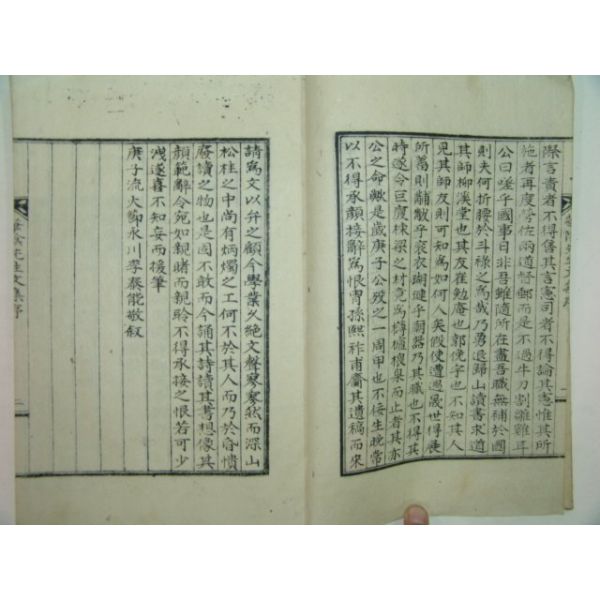 際言責者不得售其言憲司者不得論其憲惟其所
施者再度營佐兩道督郵而是不過牛刀割雞雞耳
公曰嗟乎國事日非吾雖隨所在盡吾職無補於國
則夫何折腰於斗祿之爲哉乃勇退歸山讀書求道
其師柳溪堂也其友崔勉菴也郭俛宇也不知其人
見其師友則可知爲如何人矣假使遭遇晟世得展
所蓄則黼黻乎袞衣瑚璉乎廟器乃其職也不得其
時遂令巨廈棟樑之材竟爲樽櫨椳臬而止者其亦
公之命歟是歲庚子公歿之一周甲也不佞生晩常
以不得承顔接辭爲恨曾孫熙祚甫齎其遺稿而來
請爲文以弁之顧今學業久絶文聲寥寥然而深山
松桂之中尚有炳燭之工何不於其人而乃於昏憒
廢讀之物也是固不敢而今誦其詩讀其書想像其
顔範辭令宛如親睹而親聆不得承接之恨若可少
洩遂喜不知妄而援筆
庚子流火節永川李泰能敬叙
先生文集序
二